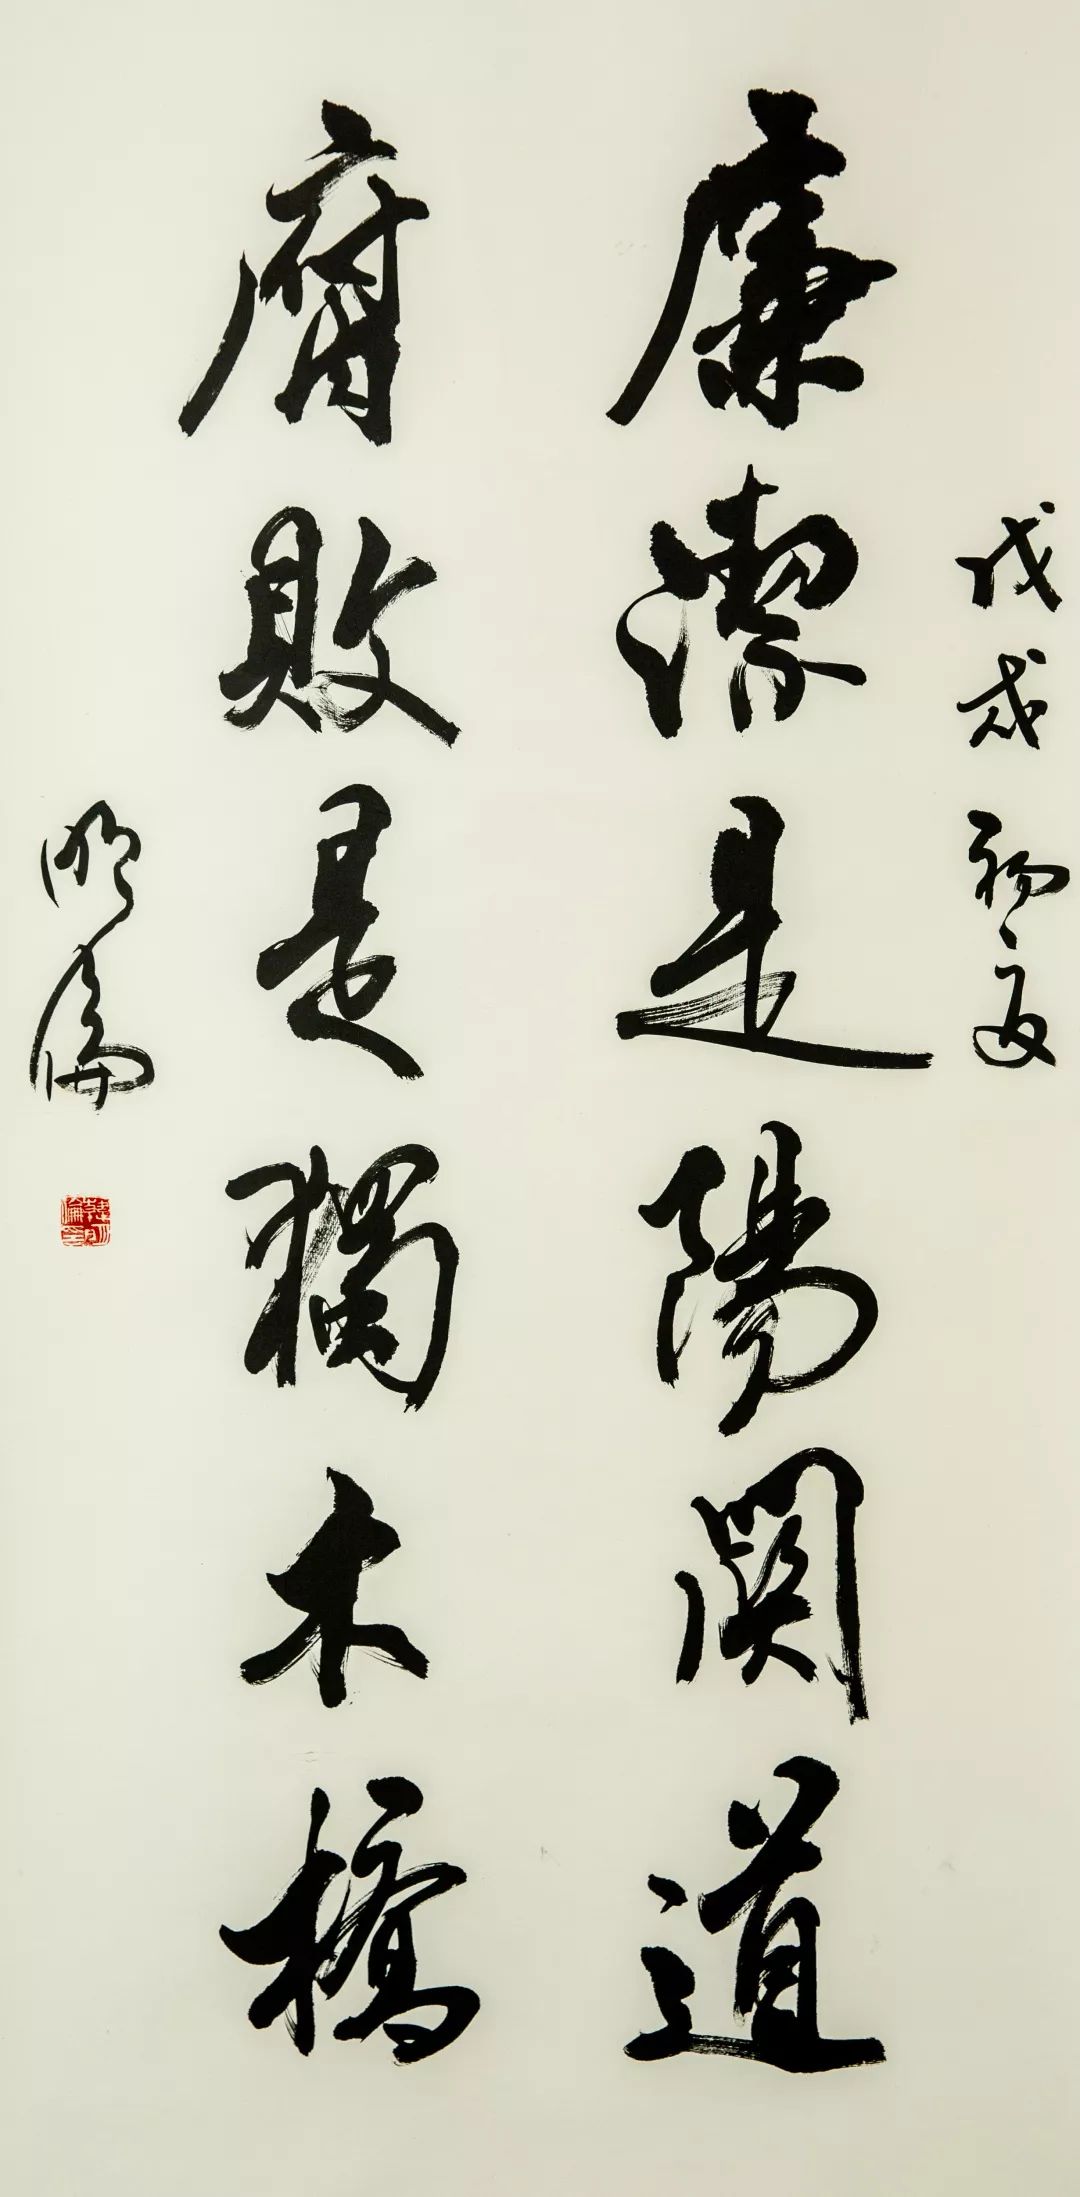 戊戌初夏
廉潔是陽関道
腐敗是獨木橋
明倫